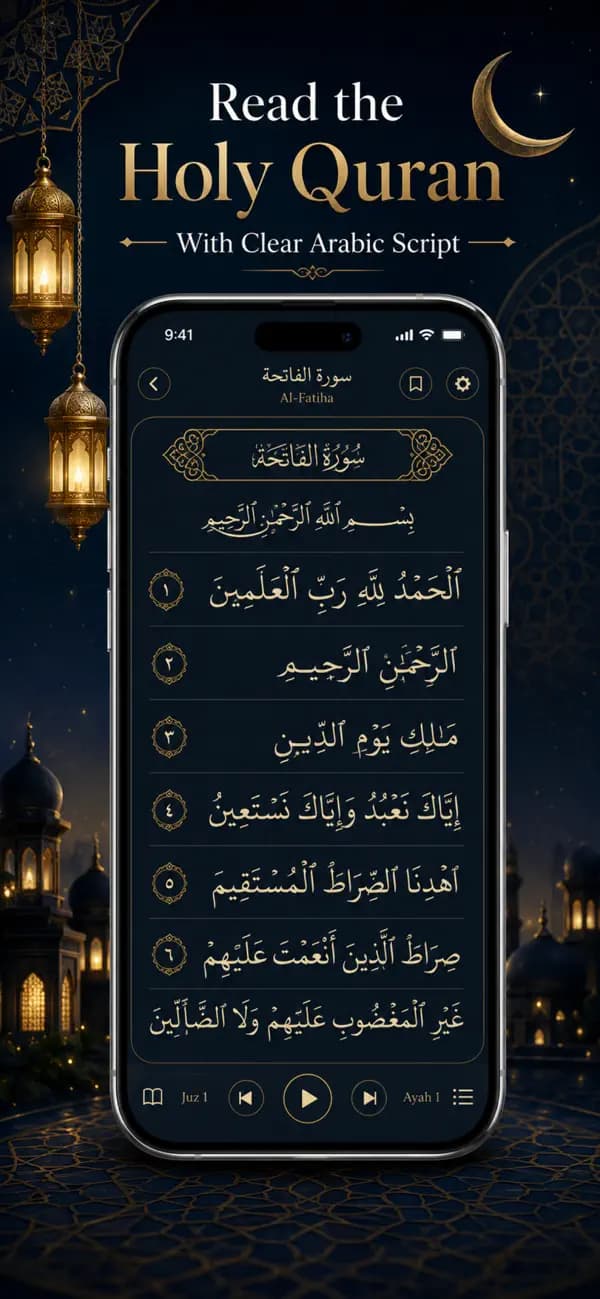 Read the
Holy Quran
With Clear Arabic Script
9:41
سورة الفاتحة
Al-Fatiha
سُورَةُ الفَاتِحَةُ
بِسْمِ اللَّهِ الرَّحْمَٰنِ الرَّحِيمِ
ٱلْحَمْدُ لِلَّهِ رَبِّ ٱلْعَٰلَمِينَ ١
ٱلرَّحْمَٰنِ ٱلرَّحِيمِ ٢
مَٰلِكِ يَوْمِ ٱلدِّينِ ٣
إِيَّاكَ نَعْبُدُ وَإِيَّاكَ نَسْتَعِينُ ٤
ٱهْدِنَا ٱلصِّرَاطَ ٱلْمُسْتَقِيمَ ٥
صِرَاطَ ٱلَّذِينَ أَنْعَمْتَ عَلَيْهِمْ ٦
غَيْرِ ٱلْمَغْضُوبِ عَلَيْهِمْ وَلَا ٱلضَّآلِّينَ
Juz 1
Ayah 1